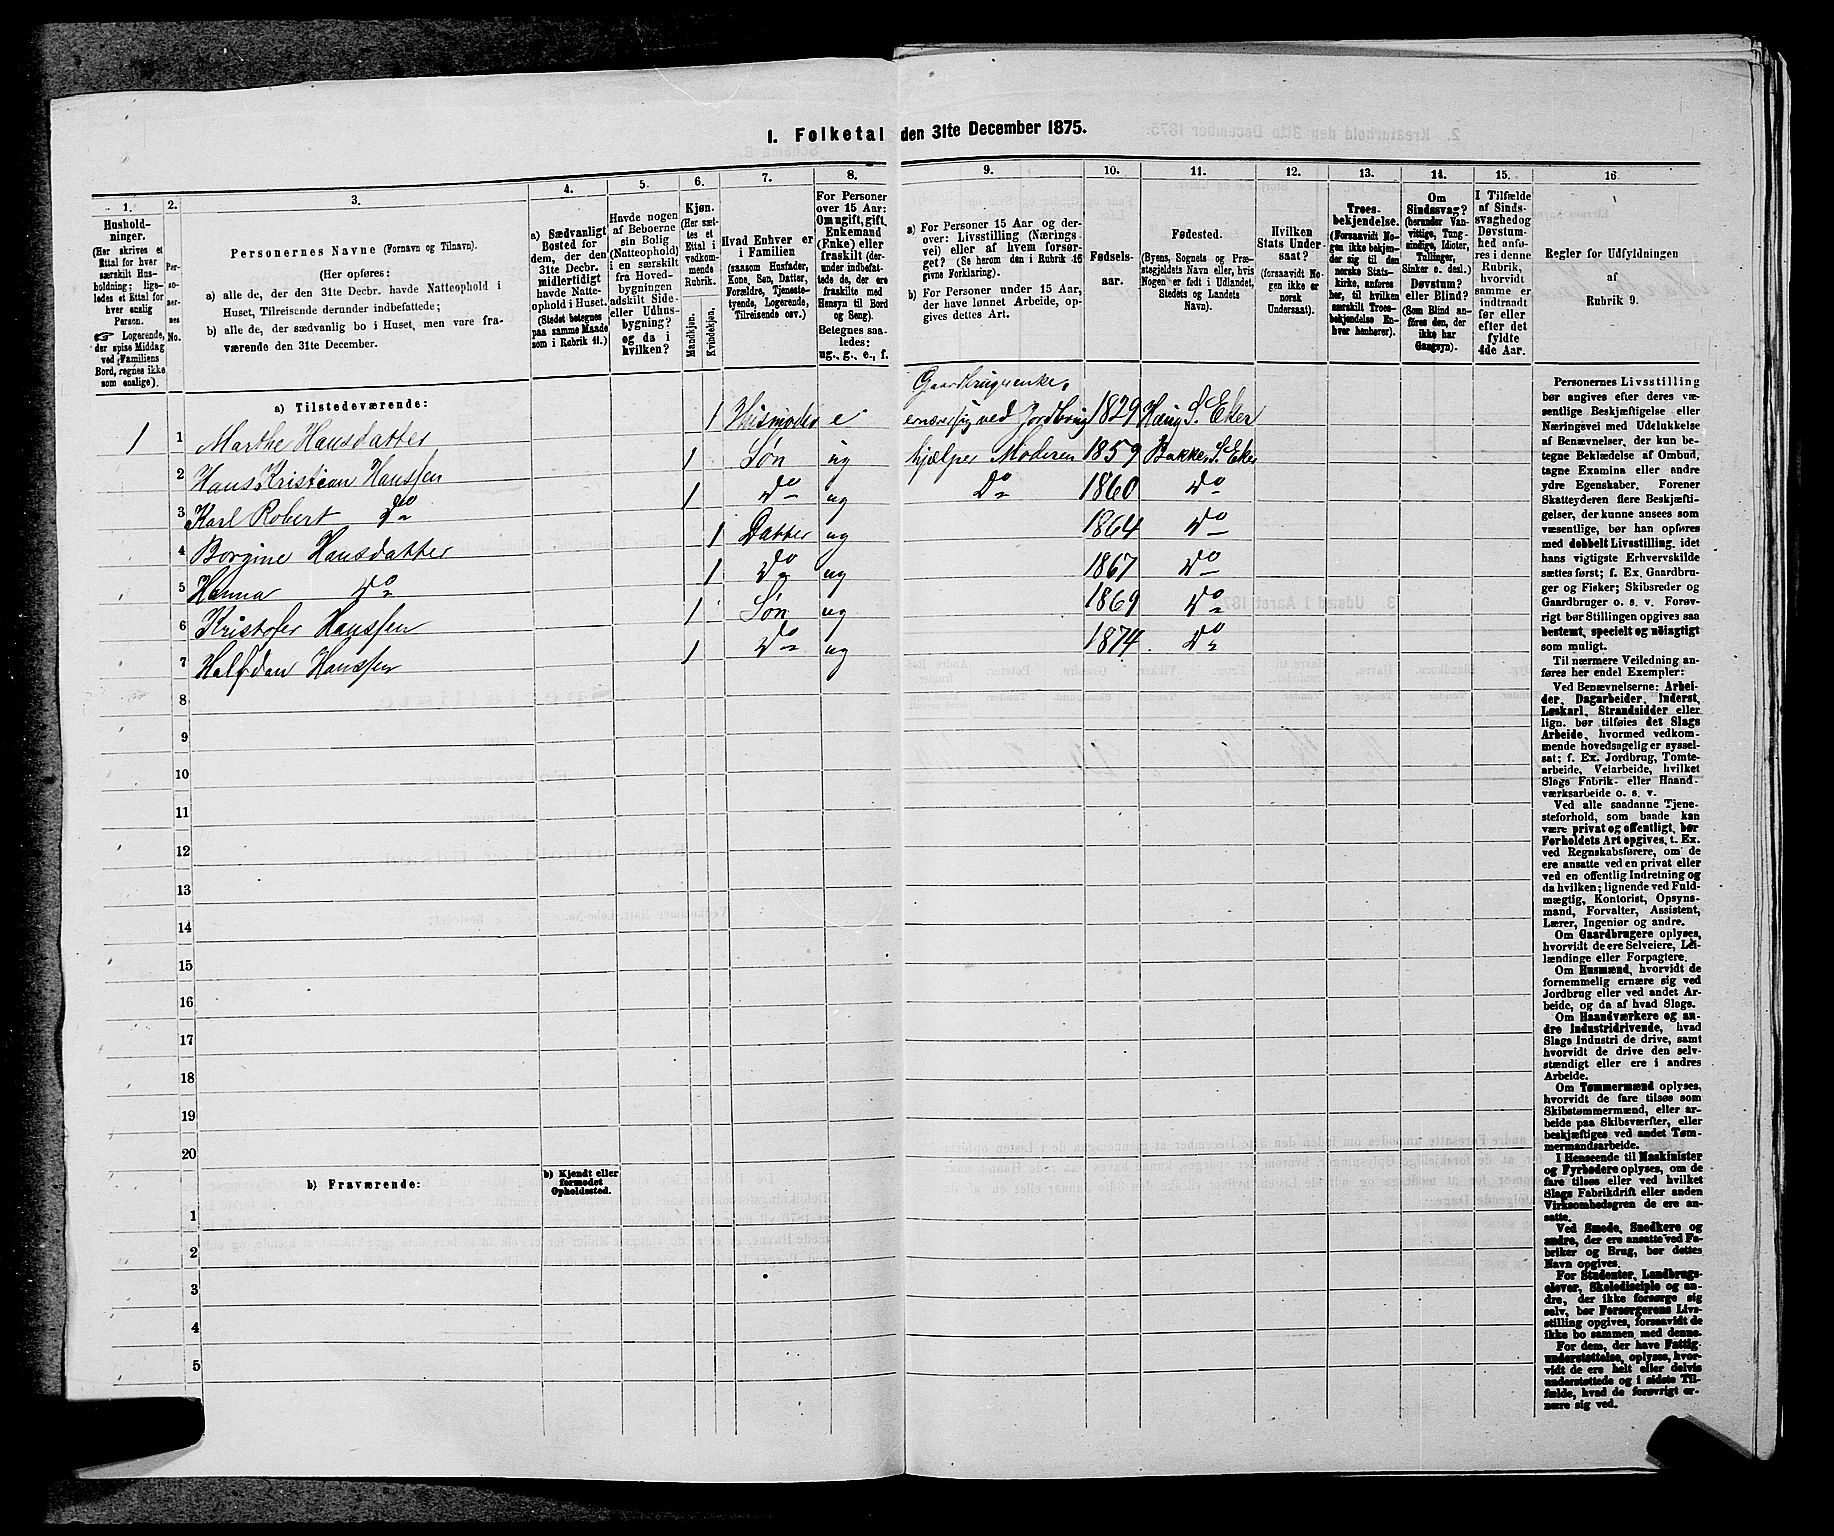 1. Folketal den 31te December 1875.
1.
Hushold-
ninger.
(Her skrives et
Ettal for hver
særskilt Hus-
holdning; lige-
ledes et Ettal for
hver enslig
Person.
☞ Logerende,
der spise Middag
ved Familiens
Bord, regnes ikke
som enslige).
2.
Per-
so-
ner-
nes
No.
3.
Personernes Navne (Fornavn og Tilnavn).
(Her opføres:
a) alle de, der den 31te Decbr. havde Natteophold i
Huset, Tilreisende derunder indbefattede;
b) alle de, der sædvanlig bo i Huset, men vare fra-
værende den 31te December.
4.
a) Sædvanligt
Bosted for
dem, der den
31te Decbr.
midlertidigt
havde Natte-
ophold i Huset.
(Stedet betegnes
paa samme Maade
som i Rubrik 11.)
5.
Havde nogen
af Beboerne
sin Bolig
(Natteophold)
i en særskilt
fra Hoved-
bygningen
adskilt Side-
eller Udhus-
bygning?
og da i
hvilken?
6.
Kjøn.
(Her sæt-
tes et
Ettal i
vedkom-
mende
Rubrik.
Mandkjøn.
Kvindekjøn.
7.
Hvad Enhver er
i Familien
(saasom Husfader,
Kone, Søn, Datter,
Forældre, Tjeneste-
tyende, Logerende,
Tilreisende osv.)
8.
For Personer
over 15 Aar:
Om ugift, gift,
Enkemand
(Enke) eller
fraskilt (der-
under indbefat-
tede de, der ere
fraskilte med
Hensyn til Bord
og Seng).
Betegnes saa-
ledes:
ug., g., e., f.
9.
a) For Personer 15 Aar og der-
over: Livsstilling (Nærings
vei) eller af hvem forsør-
get? (Se herom den i Rubrik 16
givne Forklaring).
b) For Personer under 15 Aar,
der have lønnet Arbeide, op-
gives dettes Art.
10.
Fødsels-
aar.
11.
Fødested.
(Byens, Sognets og Præ-
stegjeldets Navn eller, hvis
Nogen er født i Udlandet,
Stedets og Landets
Navn).
12.
Hvilken
Stats Under-
saat?
(forsaavidt No-
gen ikke er
norsk
Undersaat).
13.
Troes-
bekjendelse.
(Forsaavidt No-
gen ikke bekjen-
der sig til den
norske Stats-
kirke, anføres
her, til hvilken
særskilt Troes-
bekjendelse En-
hver henhører).
14.
Om
Sindssvag?
(herunder Van-
vittige, Tung-
sindige, Idioter,
Tullinger,
Sinker o. desl.)
Døvstum?
eller Blind?
(Som Blind an-
føres den, der
ikke har
Gangsyn).
15.
I Tilfælde
af Sinds-
svaghed og
Døvstum-
hed anfø-
res i denne
Rubrik,
hvorvidt
samme er
indtraadt
før eller
efter det
fyldte
4de Aar.
16
Regler for Udfyldningen
af
Rubrik 9.
a) Tilstedeværende:
Gaardbrugerenke,
1 1 Marthe Hansdatter 1 Husmoder e ernærer sig ved Jordbrug 1829 Haug S. Eker
2 Hans Kristian Hanssen 1 Søn ug hjælper Moderen 1859 Bakke, S. Eker
3 Karl Robert Do 1 Do ug Do 1860 Do
4 Borgine Hansdatter 1 Datter ug 1864 Do
5 Hanna Do 1 Do ug 1867 Do
6 Kristofer Hanssen 1 Søn ug 1869 Do
7 Halfdan Hanssen 1 Do ug 1874. Do
8
9
10
11
12
13
14
15
16
17
18
19
20
b) Fraværende:
b) Kjendt eller
formodet
Opholdssted.
1
2
3
4
5
Personernes Livsstilling
bør angives efter deres væ-
sentlige Beskjæftigelse eller
Næringsvei med Udelukkelse
af Benævnelser, der kun be-
tegne Beklædelse af Ombud,
tagne Examina eller andre
ydre Egenskaber. Forener
Skatteyderen flere Beskjæfti-
gelser, der kunne ansees som
væsentlige, bør han opføres
med dobbelt Livsstilling, idet
hans vigtigste Erhvervskilde
sættes først; f. Ex. Gaardbru-
ger og Fisker; Skibsreder og
Gaardbruger o. s. v. Forøv-
rigt bør Stillingen opgives saa
bestemt, specielt og nøiagtigt
som muligt.
Til nærmere Veiledning an-
føres her endel Exempler:
Ved Benævnelserne: Arbei-
der, Dagarbeider, Inderst,
Løskarl, Strandsidder eller
lign. bør tilføies det Slags
Arbeide, hvormed vedkom-
mende hovedsagelig er syssel-
sat; f. Ex. Jordbrug, Tomte-
arbeide, Veiarbeide, hvilket
Slags Fabrik- eller Haand-
værksarbeide o. s. v.
Ved alle saadanne Tjene-
steforhold, som baade kan
være privat og offentligt, bør
Forholdets Art opgives, t. Ex.
ved Regnskabsførere, om de
ere ansatte ved en privat eller
ved en offentlig Indretning og
da hvilken; lignende ved Fuld-
mægtig, Kontorist, Opsyns-
mand, Forvalter, Assistent,
Lærer, Ingeniør og andre.
Om Gaardbrugere oplyses,
hvorvidt de ere Selveiere, Lei-
lændinge eller Forpagtere.
Om Husmænd, hvorvidt de
fornemmelig ernære sig ved
Jordbrug eller ved andet Ar-
beide, og da af hvad Slags.
Om Haandværkere og an-
dre Industridrivende, hvad
Slags Industri de drive, samt
hvorvidt de drive den selv-
stændigt eller ere i andres
Arbeide.
Om Tømmermænd oplyses,
hvorvidt de fare tilsøs som
Skibstømmermænd, eller ar-
beide paa Skibsværfter, eller
beskjæftiges ved andet Tøm-
mermandsarbeide.
I Henseende til Maskinister
og Fyrbødere oplyses, om de
fare tilsøs eller ved hvilket
Slags Fabrikdrift eller anden
Virksomhedsgren de ere an-
satte.
Ved Smede, Snedkere og
andre, der ere ansatte ved Fa-
briker og Brug, bør dettes
Navn opgives.
For Studenter, Landbrugs-
elever, Skoledisciple og an-
dre, der ikke forsørge sig
selv, bør Forsørgerens Livs-
stilling opgives, forsaavidt de
ikke bo sammen med denne.
For dem, der have Fattig-
understøttelse, oplyses, hvor-
vidt de ere helt eller delvis
understøttede og i sidste Til-
fælde, hvad de forøvrigt er-
nære sig ved.